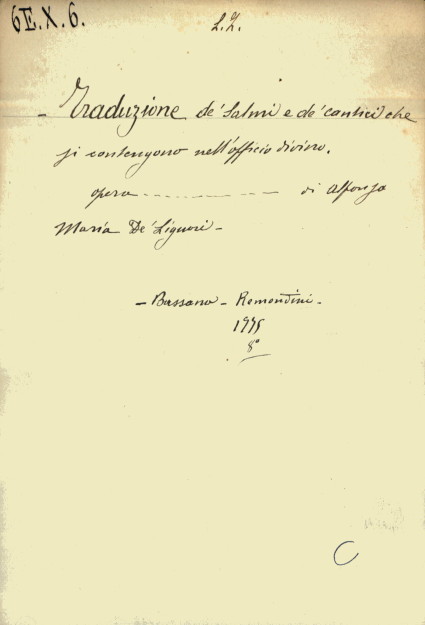 6E.X.6.
L.Z.
- Traduzione de' Salmi e de' cantici che
si contengono nell'officio divino.
opera - - - - - - - - - - di Alfonso
Maria De' Liguori -
- Bassano - Remondini -
1775
8°
C